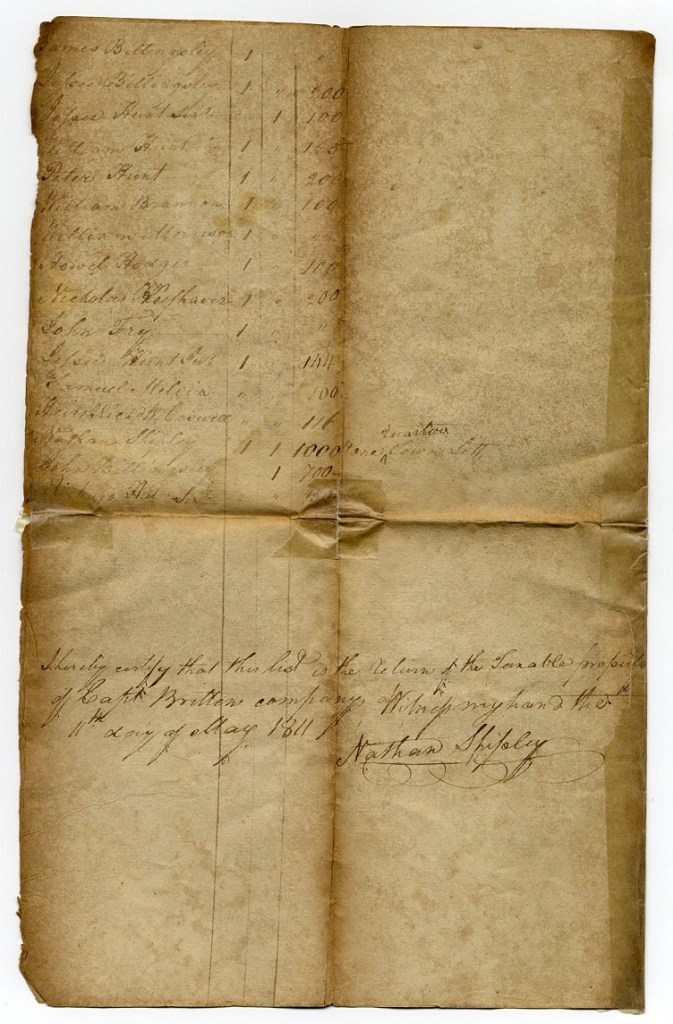 James Billingsley 1 " "
Billingsley 1 " 200
Jessee Hunt Senr " 1 100
William Hunt 1 " 165
Peter Hunt 1 " 200
William Brannon 1 " 100
William Morrison 1 " "
Howel Hodges 1 " 100
Nicholas 1 " 200
John Fry 1 " "
Jessee Hunt Jur 1 " 144
Samuel Melvia " " 100
" " 116
Nathan Shipley 1 1 1000 one quarter Town Lott
John Billingsley 1 700
I hereby certify that this list is the Return of the Taxable property
of Capt Brittons company Witness my hand the
11th day of May 1811
Nathan Shipley